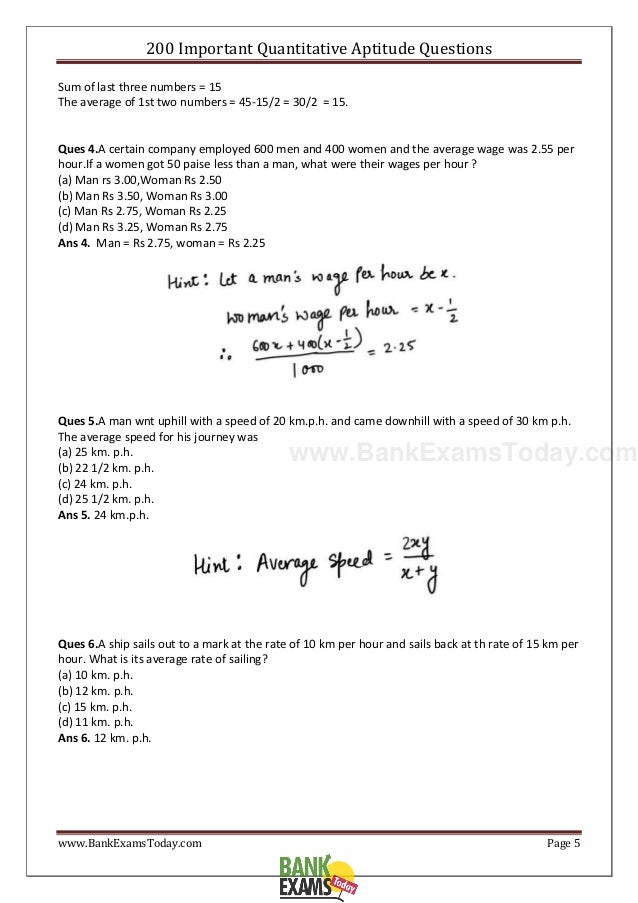 200 Important Quantitative Aptitude Questions
Sum of last three numbers = 15
The average of 1st two numbers = 45-15/2 = 30/2 = 15.
Ques 4.A certain company employed 600 men and 400 women and the average wage was 2.55 per
hour.If a women got 50 paise less than a man, what were their wages per hour ?
(a) Man rs 3.00,Woman Rs 2.50
(b) Man Rs 3.50, Woman Rs 3.00
(c) Man Rs 2.75, Woman Rs 2.25
(d) Man Rs 3.25, Woman Rs 2.75
Ans 4. Man = Rs 2.75, woman = Rs 2.25
Hint : Let a man's wage per hour be x.
Woman's wage per hour = x - 1/2
∴ 600x + 400(x - 1/2) / 1000 = 2.25
Ques 5.A man wnt uphill with a speed of 20 km.p.h. and came downhill with a speed of 30 km p.h.
The average speed for his journey was
www.BankExamsToday.com
(a) 25 km. p.h.
(b) 22 1/2 km. p.h.
(c) 24 km. p.h.
(d) 25 1/2 km. p.h.
Ans 5. 24 km.p.h.
Hint : Average Speed = 2xy / x + y
Ques 6.A ship sails out to a mark at the rate of 10 km per hour and sails back at th rate of 15 km per
hour. What is its average rate of sailing?
(a) 10 km. p.h.
(b) 12 km. p.h.
(c) 15 km. p.h.
(d) 11 km. p.h.
Ans 6. 12 km. p.h.
www.BankExamsToday.com Page 5
BANK
EXAMS Today